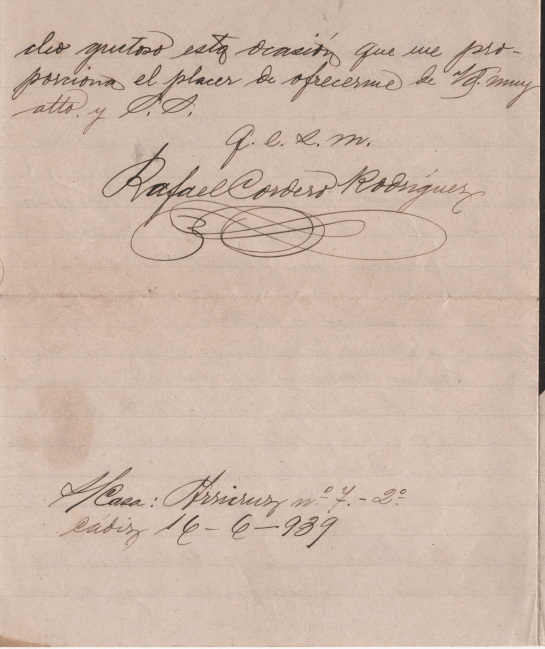 cho gustoso esta ocasión que me pro-
porciona el placer de ofrecerme de Vd. muy
atto. y S.S.
q. e. s. m.
Rafael Cordero Rodríguez
S/Casa: nº 7.-2º
Cádiz 16-6-939